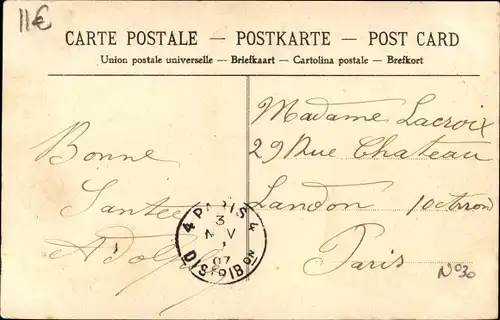 11€
CARTE POSTALE — POSTKARTE — POST CARD
Union postale universelle — Briefkaart — Cartolina postale — Brefkort
Bonne
Santée
Adolphe
Madame Lacroix
29 Rue Chateau
Landon
Paris
N°30
4 PARIS 4
3
07
DISTRIBON